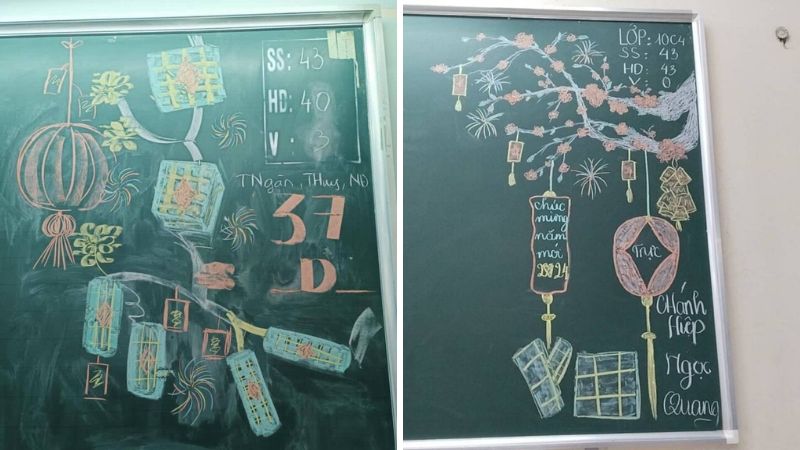 SS: 43
HD: 40
V : 3
TNgân, THuy, NĐ
37
D
LỚP: 10C4
SS: 43
HD: 43
V : 0
chúc
mừng
năm
mới
2024
Trực
Chánh
Hiệp
Ngọc
Quang